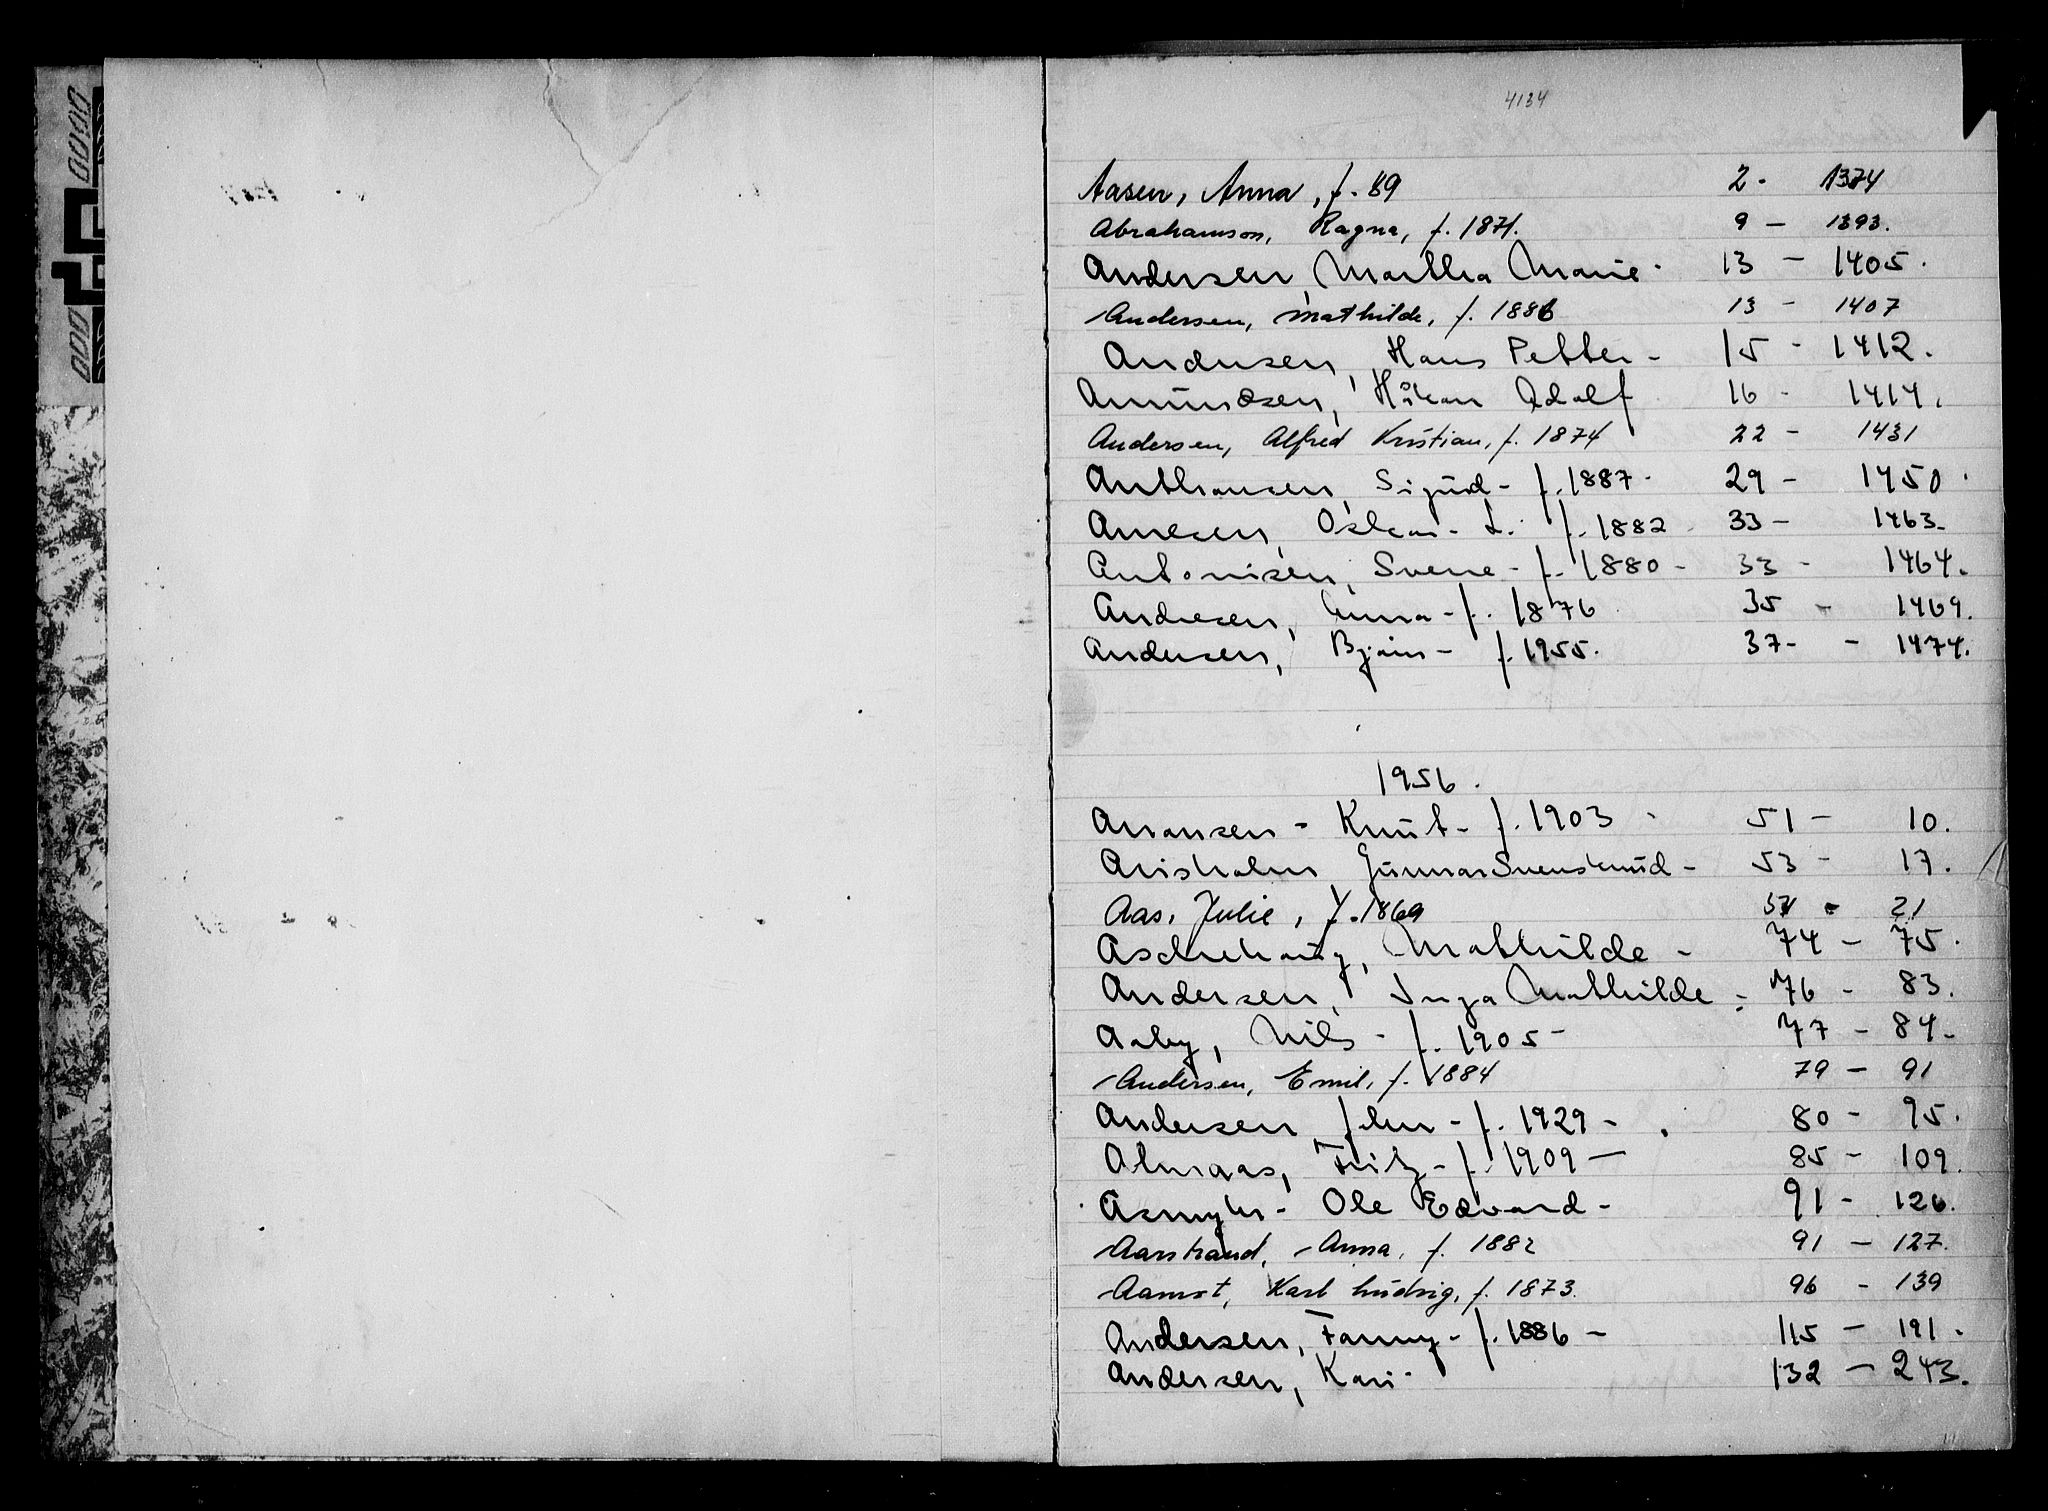 4134
Aasen, Anna, f. 89 2 - 1374
Abrahamson, Ragna, f. 1871. 9 - 1393.
Andersen, Martha Marie - 13 - 1405.
Andersen, Mathilde, f. 1886 13 - 1407
Andersen, Hans Petter - 15 - 1412.
Amundsen, Håkon Adolf 16 - 1414.
Andersen, Alfred Kristian, f. 1874 22 - 1431
Anthonsen, Sigurd - f. 1887 - 29 - 1450.
Arnesen, Oskar - L. f. 1882 - 33 - 1463.
Antonisen, Sverre - f. 1880 - 33 - 1464.
Andresen, Anna - f. 1876 35 - 1469.
Andersen, - f. 1955. 37 - - 1474.
1956.
Aronsen - Knut - f. 1903 - 51 - 10.
Arisholm Gunnar Svenskerud - 53 - 17.
Aas, Julie, f. 1869 - 21
Aschehoug, Mathilde - 74 - 75.
Andersen, Inga Mathilde - 76 - 83.
Aaby, Nils - f. 1905 - 77 - 84.
Andersen, Emil, f. 1884 79 - 91
Andersen John - f. 1929 - 80 - 95.
Almaas, Fritz - f. 1909 - 85 - 109.
Asmyhr - Ole Edvard - 91 - 126.
Aarstrand, Anna, f. 1882 91 - 127.
Aamot, Karl Ludvig, f. 1873. 96 - 139
Andersen, Fanny - f. 1886 - 115 - 191.
Andersen, Kari - 132 - 243.